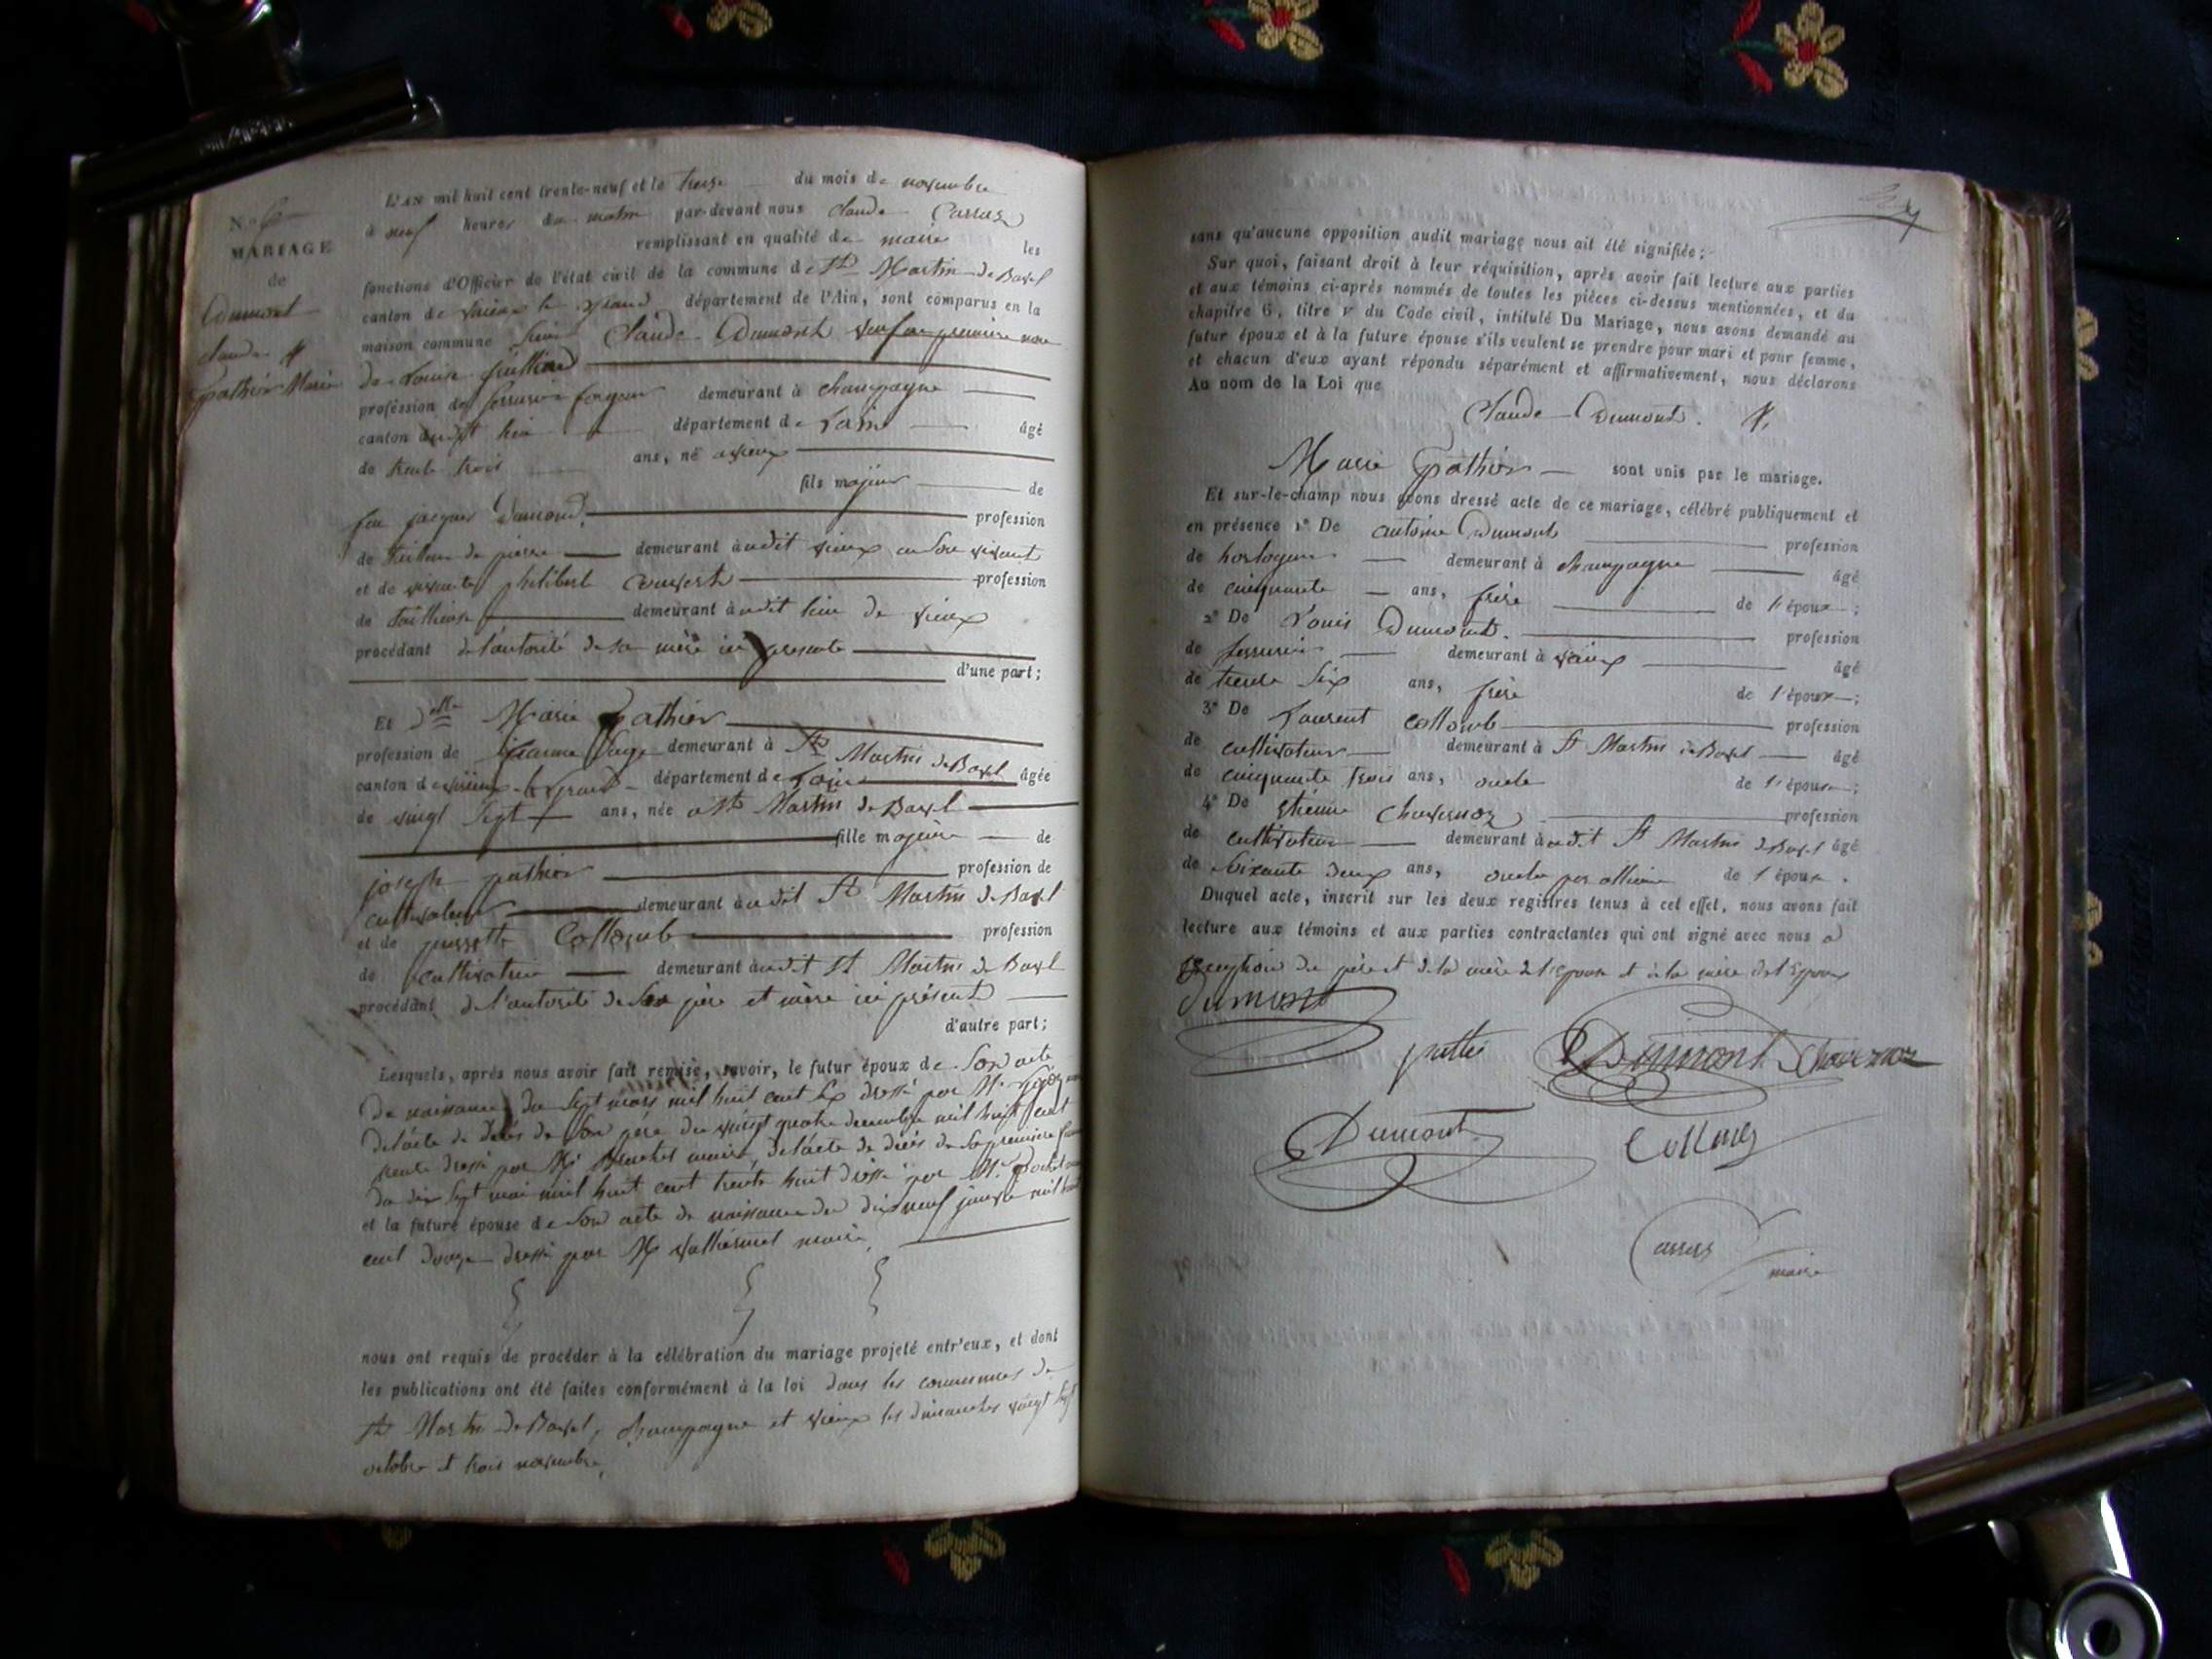 L'AN mil huit cent trente-neuf et le treize du mois de novembre
à neuf heures du matin par-devant nous Claude Carraz
N.o 6
MARIAGE
de
Dumont
claude &
pathier Marie
remplissant en qualité de maire les
fonctions d'Officier de l'état civil de la commune de St Martin de Bavel
canton de virieux le grand département de l'Ain, sont comparus en la
maison commune Sieur Claude Dumont veuf en première
de Louise
profession de serrurier demeurant à champagne
canton dudit lieu département de L'ain âgé
de trente trois ans, né a vieux
fils majeur de
feu jacques Dumond, profession
de tailleur de pierre demeurant audit vieux en son vivant
et de vivante philiberte profession
de demeurant audit lieu de vieux
procédant de l'autorité de sa mère ici presente
d'une part;
Et Delle Marie pathier
profession de demeurant à St Martin de Bavel
canton de virieux le grand département de L'ain âgée
de vingt sept ans, née a St Martin de Bavel
fille majeure de
joseph pathier profession de
cultivateur demeurant audit St Martin de Bavel
et de Collomb profession
de cultivatrice demeurant audit St Martin de Bavel
procédant de l'autorité de ses père et mère ici présent
d'autre part;
Lesquels, après nous avoir fait remise, savoir, le futur époux de Son acte
de naissance du Sept mars mil huit cent six dressé par Mr
de l'acte de décès de Son père du vingt quatre decembre mil huit cent
trente dressé par Mr maire, de l'acte de décès de Sa premiere
du dix Sept mai mil huit cent trente huit dressé par Mr
et la future épouse de Son acte de naissance du dix neuf janvier mil huit
cent douze dressé par Mr maire,
nous ont requis de procéder à la célébration du mariage projeté entr'eux, et dont
les publications ont été faites conformément à la loi dans les communes de
St Martin de Bavel, champagne et vieux les dimanches vingt sept
octobre et trois novembre,
sans qu'aucune opposition audit mariage nous ait été signifiée;
Sur quoi, faisant droit à leur réquisition, après avoir fait lecture aux parties
et aux témoins ci-après nommés de toutes les pièces ci-dessus mentionnées, et du
chapitre 6, titre v du Code civil, intitulé Du Mariage, nous avons demandé au
futur époux et à la future épouse s'ils veulent se prendre pour mari et pour femme,
et chacun d'eux ayant répondu séparément et affirmativement, nous déclarons
Au nom de la Loi que
Claude Dumont. &
Marie pathier sont unis par le mariage.
Et sur-le-champ nous avons dressé acte de ce mariage, célébré publiquement et
en présence 1° De antoine Dumont profession
de horloger demeurant à champagne âgé
de cinquante ans, frère de l'époux;
2° De Louis Dumont. profession
de serrurier demeurant à vieux âgé
de trente Six ans, frère de l'époux;
3° De Laurent collomb profession
de cultivateur demeurant à St Martin de Bavel âgé
de cinquante trois ans, oncle de l'épouse;
4° De etienne Chavernoz profession
de cultivateur demeurant audit St Martin de Bavel âgé
de Soixante deux ans, oncle par alliance de l'épouse.
Duquel acte, inscrit sur les deux registres tenus à cet effet, nous avons fait
lecture aux témoins et aux parties contractantes qui ont signé avec nous a
exception du père et de la mère de l'épouse et de la mère de l'Epoux
Dumont
Dumont Chavernoz
Dumont
maire